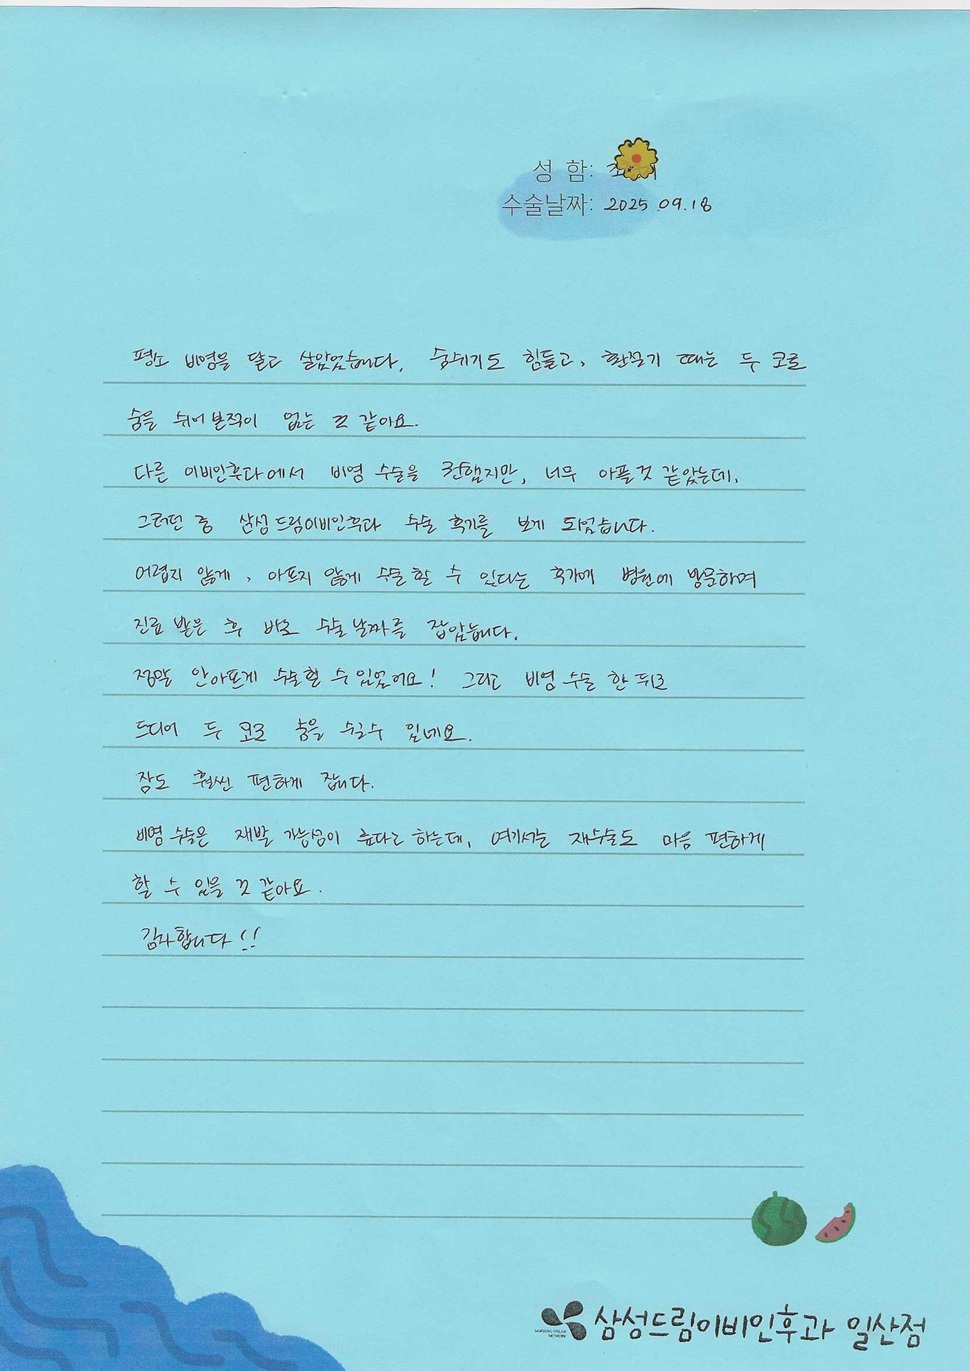 성 함:
수술날짜: 2025.09.18
평소 비염을 달고 살았었습니다. 숨쉬기도 힘들고, 환절기 때는 두 코로
숨을 쉬어본적이 없는 것 같아요.
다른 이비인후과에서 비염 수술을 권했지만, 너무 아플것 같았는데,
그러던 중 삼성드림이비인후과 수술 후기를 보게 되었습니다.
어렵지 않게, 아프지 않게 수술 할 수 있다는 후기에 병원에 방문하여
진료 받은 후 바로 수술 날짜를 잡았습니다.
정말 안아프게 수술할 수 있었어요! 그리고 비염 수술 한 뒤로
드디어 두 코로 숨을 쉴수 있네요.
잠도 훨씬 편하게 잡니다.
비염 수술은 재발 가능성이 높다고 하는데, 여기서는 재수술도 마음 편하게
할 수 있을 것 같아요.
감사합니다!!
삼성드림이비인후과 일산점